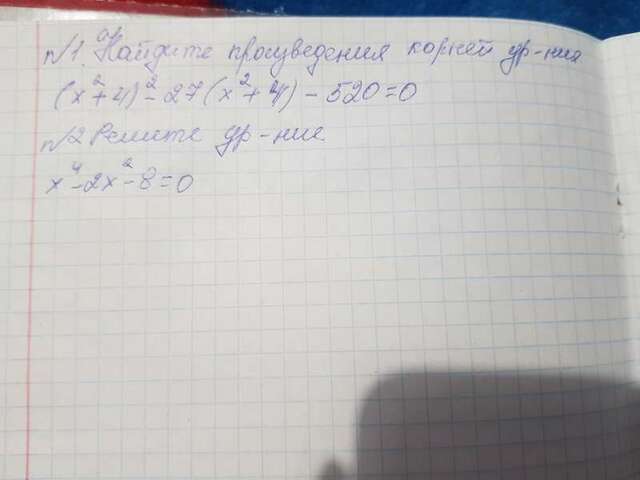 N1. Найдите произведения корней ур-ния
(x²+4)²-27(x²+4)-520=0
N2 Решите ур-ние.
x⁴-2x²-8=0